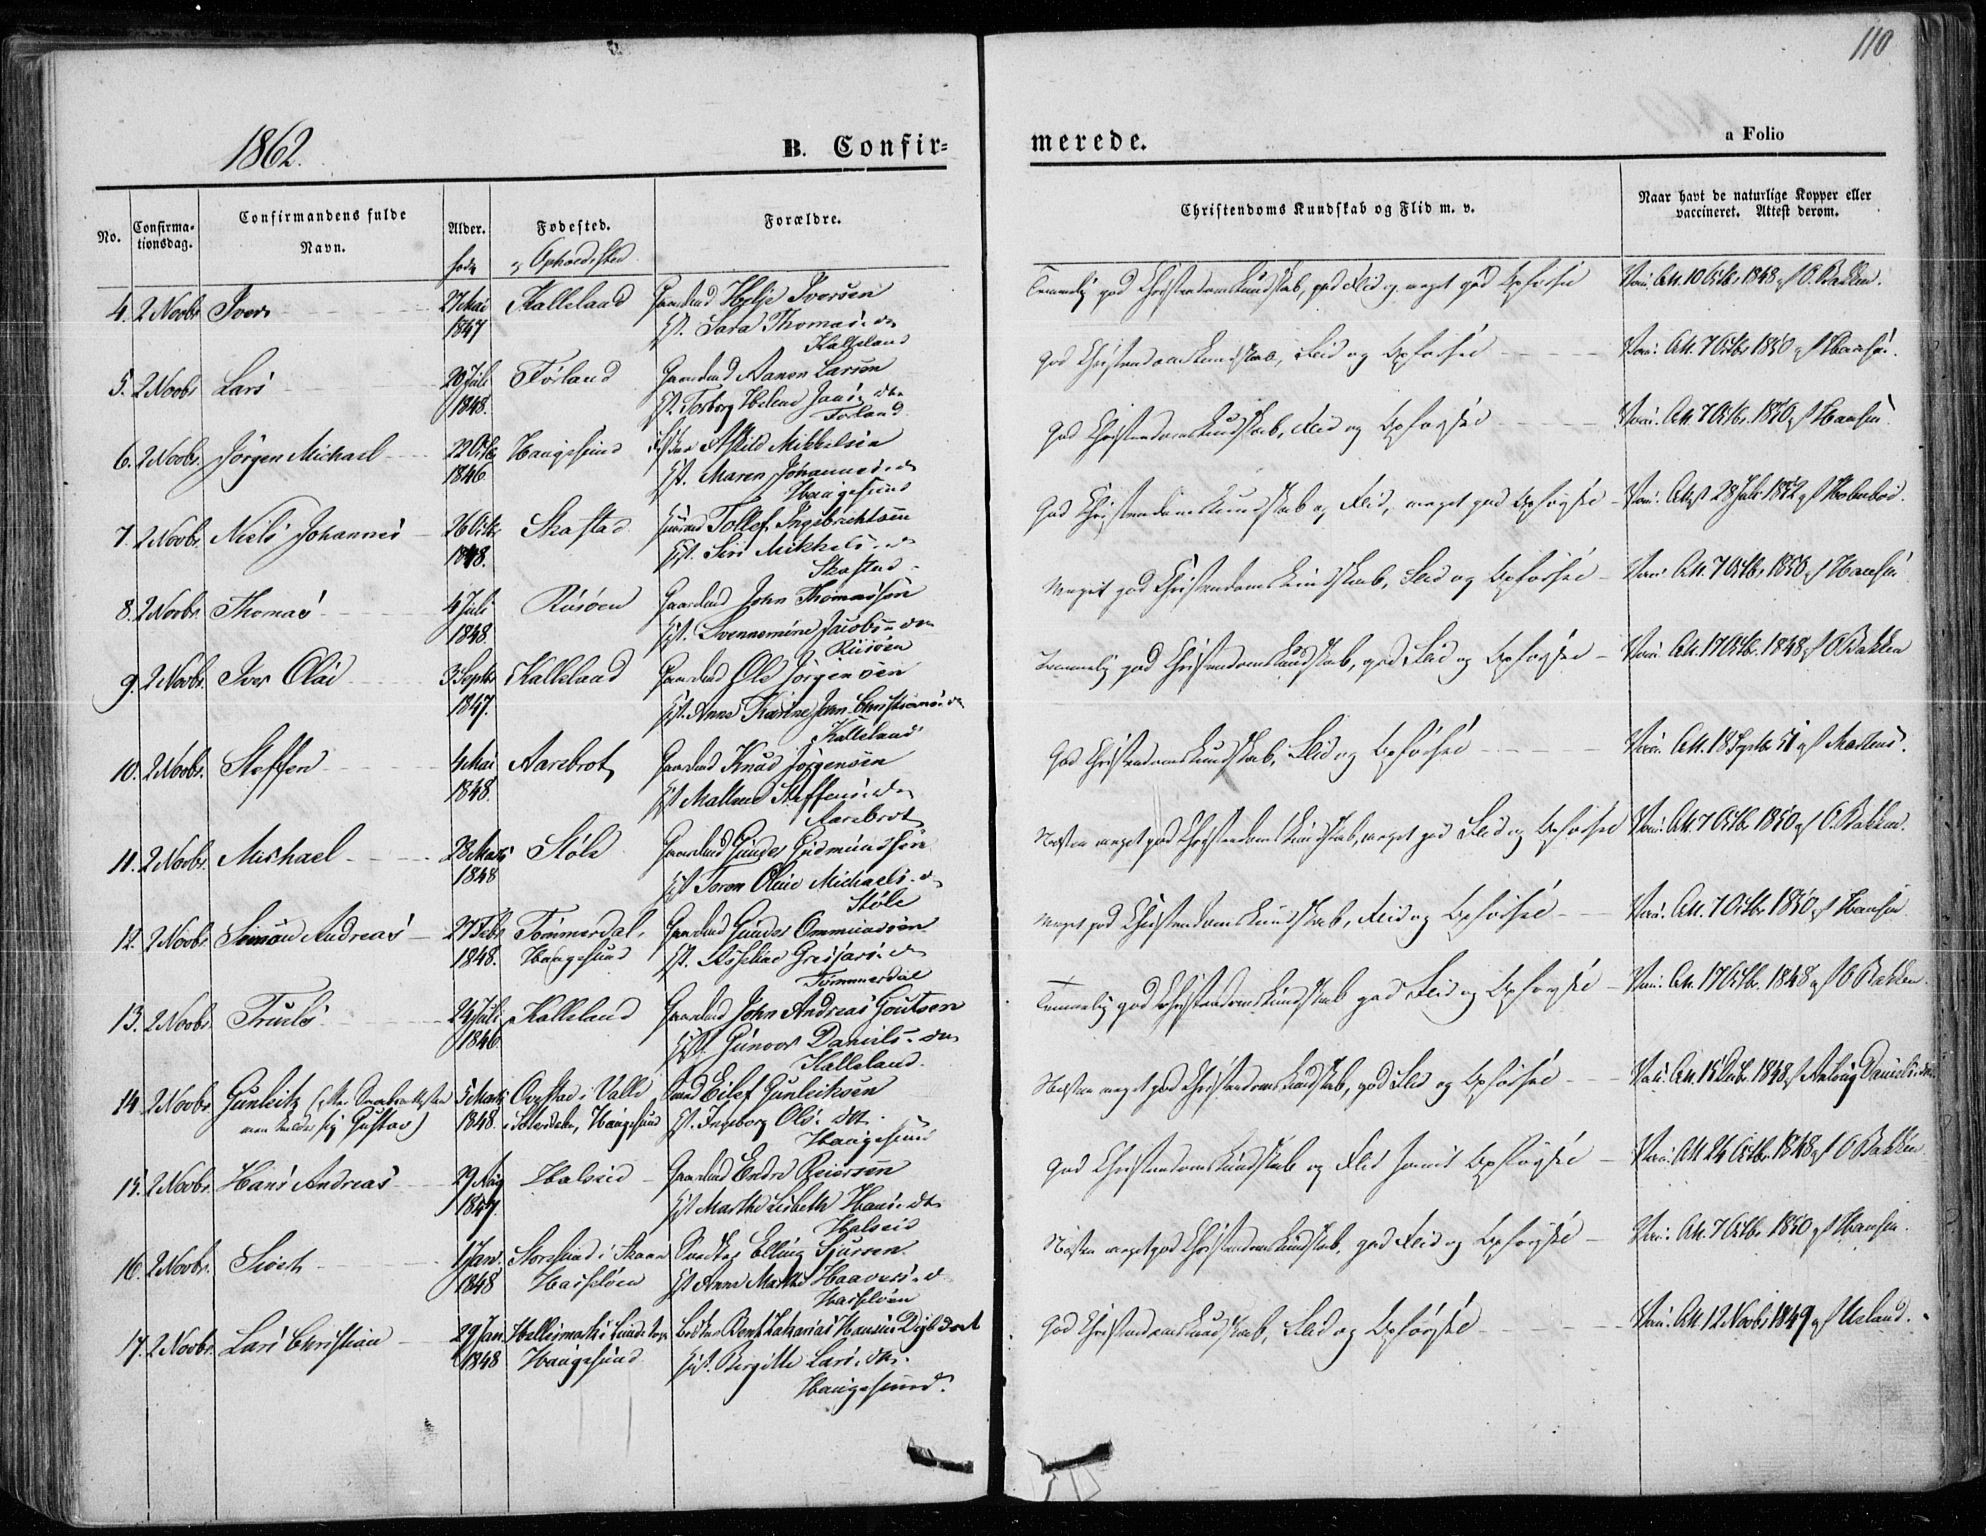 110
1862.
B. Confir-
merede.
a Folio
No.
Confirma-
tionsdag.
Confirmandens fulde
Navn.
Alder.
Fødested.
og Opholdssted
Forældre.
Christendoms Kundskab og Flid m. v.
Naar havt de naturlige Kopper eller
vaccineret. Attest derom.
4. 2 Novbr Iver 27 Mai Kalleland Gaardmd Helje Iversen
1847 Sara Thomasd.
Kalleland
Temmelig god Christendomskundskab, god Flid og meget god Opførsel
Vacc. Att. 10 Octbr 1848 af O. Bakken.
5. 2 Novbr Lars 20 Juli Førland Gaardmd Aanon Larsen
1848. Torborg Helene Jansdtr
Førland
God Christendomskundskab, Flid og Opførsel
Vacc. Att. 7 Octbr 1850 af Hansen.
6. 2 Novbr. Jørgen Michael 22 Octbr Haugesund Mikkelsen
1846 Maren Johannesd.
Haugesund
God Christendomskundskab, Flid og Opførsel
Vacc. Att. 7 Octbr. 1850 af Hansen.
7. 2 Novbr. Niels Johannes 26 Octbr Skaftad Tollef Ingebrichtsen
1848. Siri Mikkelsd.
Skaftad
God Christendomskundskab og Flid, meget god Opførsel
Vacc. Att. 28 Juli 1852 af
8. 2 Novbr. Thomas 4 Juli Risøen Gaardmd John Thomassen
1848. Jacobsd.
Risøen
Meget god Christendomskundskab, Flid og Opførsel
Vacc. Att. 7 Octbr. 1850 af Hansen
9 2 Novbr. Iver Olai 3 Septbr Kalleland Gaardmd Ole Jørgensen
1847. Anne Karine Christiansd.
Kalleland
Temmelig god Christendomskundskab, god Flid og Opførsel
Vacc. Att. 17 Octbr. 1848 af O Bakken
10. 2 Novbr. Steffen 4 Mai Aarebrot Gaardmd Knud Jørgensen
1848. Malene Steffensd.
Aarebrot
God Christendomskundskab, Flid og Opførsel
Vacc. Att. 18 Septbr 51 af Martens.
11. 2 Novbr. Michael 28 Marts Støle Gaardmd Gunder Gudmundsen
1848 Toron Oline Michaelsd.
Støle
Næsten meget god Christendomskundskab, meget god Flid og Opførsel
Vacc. Att. 7 Octbr. 1850 af O. Bakken.
12. 2 Novbr. Simon Andreas 27 Febr Tømmerdal, Gaardmd Gunder Ommundsen
1848. Haugesund
Tømmerdal
Meget god Christendomskundskab, Flid og Opførsel
Vacc. Att. 7 Octbr. 1850 af Hansen
13. 2 Novbr. Truels 24 Juli Kalleland Gaardmd John Andreas Goutsen
1846 Gunvor Danielsd.
Kalleland.
Temmelig god Christendomskundskab god Flid og Opførsel
Vacc. Att. 17 Octbr. 1848 af O Bakken
14. 2 Novbr. Gunleik 5 Marts i Valle Eilef Gunleiksen
sig Gustav) 1848. Haugesund Ingeborg Olsdtr.
Haugesund
Næsten meget god Christendomskundskab, god Flid og Opførsel
Vacc. Att. 15 1848 af Danielsen.
15. 2 Novbr. Hans Andreas 29 Aug Halseid Gaardmd Endre Reiersen
1847. Marthe Lisbeth Hansdtr
Halseid
God Christendomskundskab og Flid samt Opførsel
Vacc. Att. 24 Octbr. 1848 af O Bakken
16. 2 Novbr. Sivert 1 Jan. Storesund i Skaare Elling Sjursen
1848 Hasseløen Anne Marthe Haaversd.
Hasseløen
Næsten meget god Christendomskundskab, god Flid og Opførsel
Vacc. Att. 7 Octbr. 1850 af Hansen.
17. 2 Novbr. Lars Christian 29 Jan Bent Zakarias Hansen
1848 Haugesund Birgitte Larsdtr.
Haugesund.
God Christendomskundskab, Flid og Opførsel
Vacc. Att. 12 Novbr 1849 af Usland.